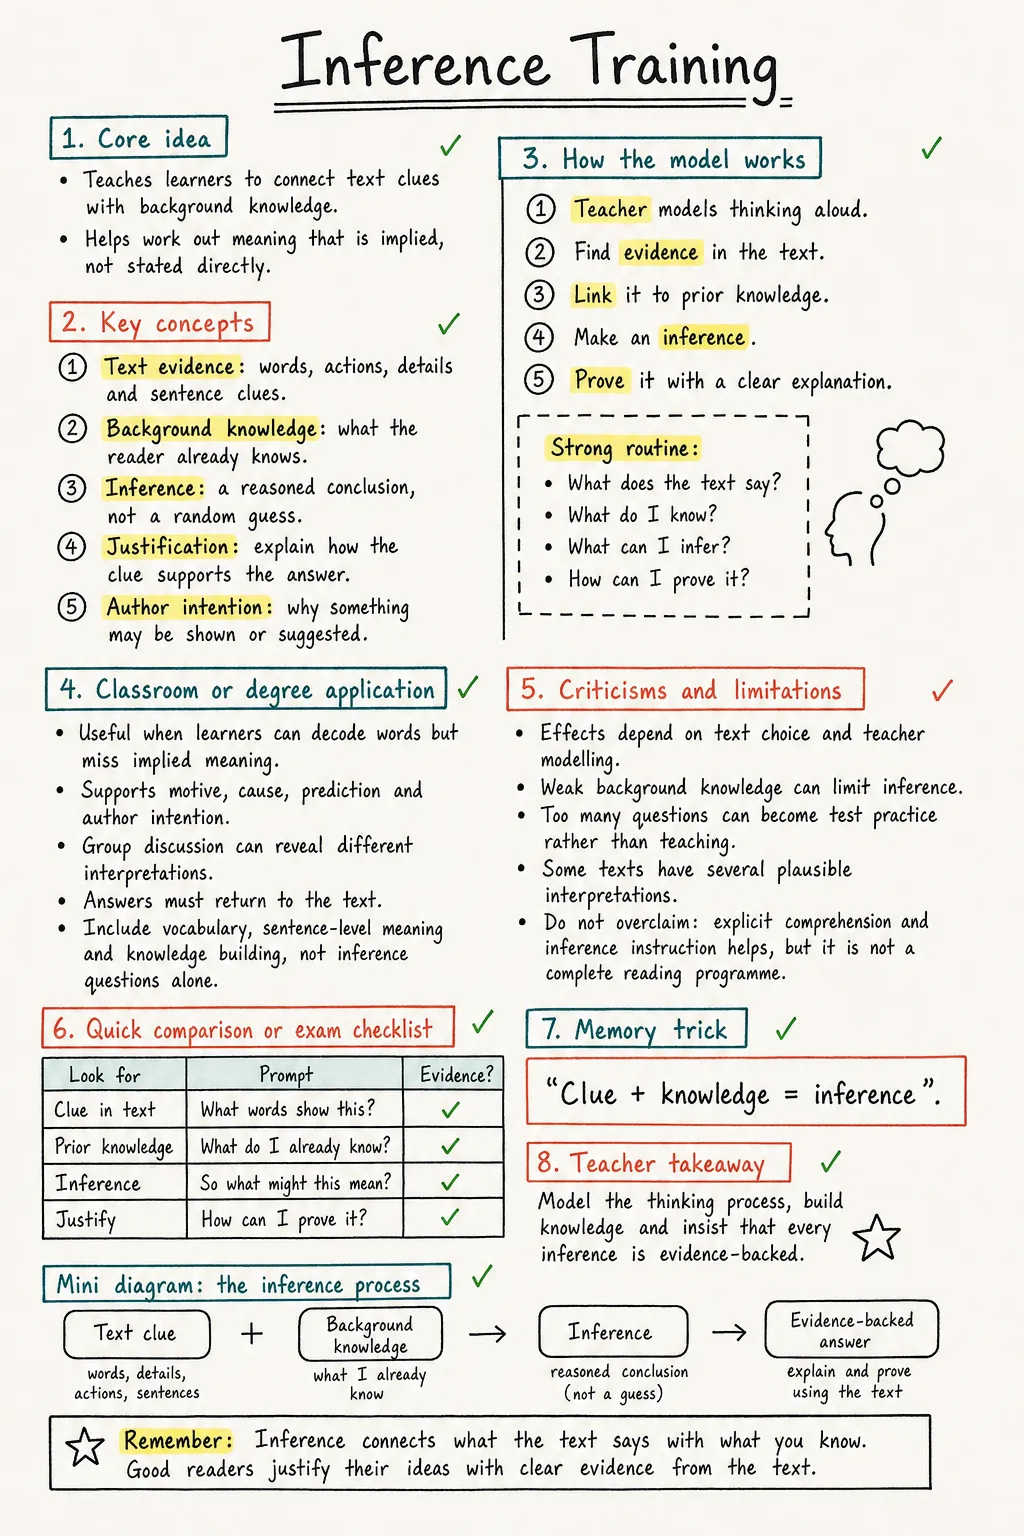 Inference Training
1. Core idea
• Teaches learners to connect text clues
with background knowledge.
• Helps work out meaning that is implied,
not stated directly.
2. Key concepts
① Text evidence: words, actions, details
and sentence clues.
② Background knowledge: what the
reader already knows.
③ Inference: a reasoned conclusion,
not a random guess.
④ Justification: explain how the
clue supports the answer.
⑤ Author intention: why something
may be shown or suggested.
3. How the model works
① Teacher models thinking aloud.
② Find evidence in the text.
③ Link it to prior knowledge.
④ Make an inference.
⑤ Prove it with a clear explanation.
Strong routine:
• What does the text say?
• What do I know?
• What can I infer?
• How can I prove it?
4. Classroom or degree application
• Useful when learners can decode words but
miss implied meaning.
• Supports motive, cause, prediction and
author intention.
• Group discussion can reveal different
interpretations.
• Answers must return to the text.
• Include vocabulary, sentence-level meaning
and knowledge building, not inference
questions alone.
5. Criticisms and limitations
• Effects depend on text choice and teacher
modelling.
• Weak background knowledge can limit inference.
• Too many questions can become test practice
rather than teaching.
• Some texts have several plausible
interpretations.
• Do not overclaim: explicit comprehension and
inference instruction helps, but it is not a
complete reading programme.
6. Quick comparison or exam checklist
Look for Prompt Evidence?
Clue in text What words show this? ✓
Prior knowledge What do I already know? ✓
Inference So what might this mean? ✓
Justify How can I prove it? ✓
7. Memory trick
“Clue + knowledge = inference”.
8. Teacher takeaway
Model the thinking process, build
knowledge and insist that every
inference is evidence-backed.
Mini diagram: the inference process
Text clue + Background knowledge → Inference → Evidence-backed answer
words, details,
actions, sentences
what I already
know
reasoned conclusion
(not a guess)
explain and prove
using the text
Remember: Inference connects what the text says with what you know.
Good readers justify their ideas with clear evidence from the text.